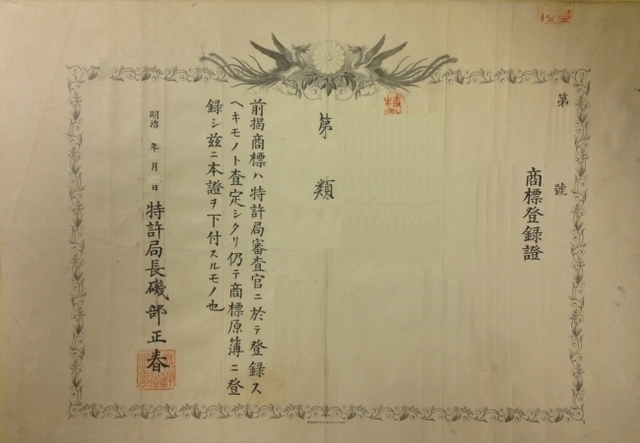 第　號
商標登録證
第　類
前揭商標ハ特許局審査官ニ於テ登録ス
ヘキモノト査定シタリ仍テ商標原簿ニ登
録シ兹ニ本證ヲ下付スルモノ也
明治　年　月　日
特許局長磯部正春